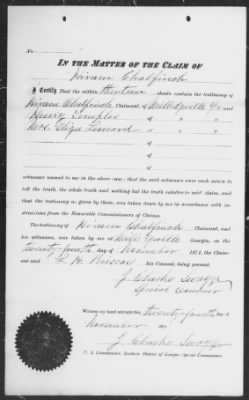 No.
IN THE MATTER OF THE CLAIM OF
Hiram Chalfinch
I Certify That the within thirteen sheets contain the testimony of
Hiram Chalfinch Claimant, of Milledgeville Ga
Henry Temples " "
Mrs. Eliza Leonard " "
witnesses named to me in the above case; that the said witnesses were each sworn to
tell the truth, the whole truth and nothing but the truth relative to said claim, and
that the testimony as given by them, was taken down by me in accordance with in-
structions from the Honorable Commissioners of Claims.
The testimony of Hiram Chalfinch Claimant, and
his witnesses, was taken by me at Georgia, on the
twenty fourth day of November 1871, the Claim-
ant and L. H. Briscoe his Counsel, being present.
J Clarke Swayze
Special Commr
Witness my hand and official this twenty fourth of
November
J Clarke Swayze
U. S. Commissioner, Southern District of Georgia—Special Commissioner